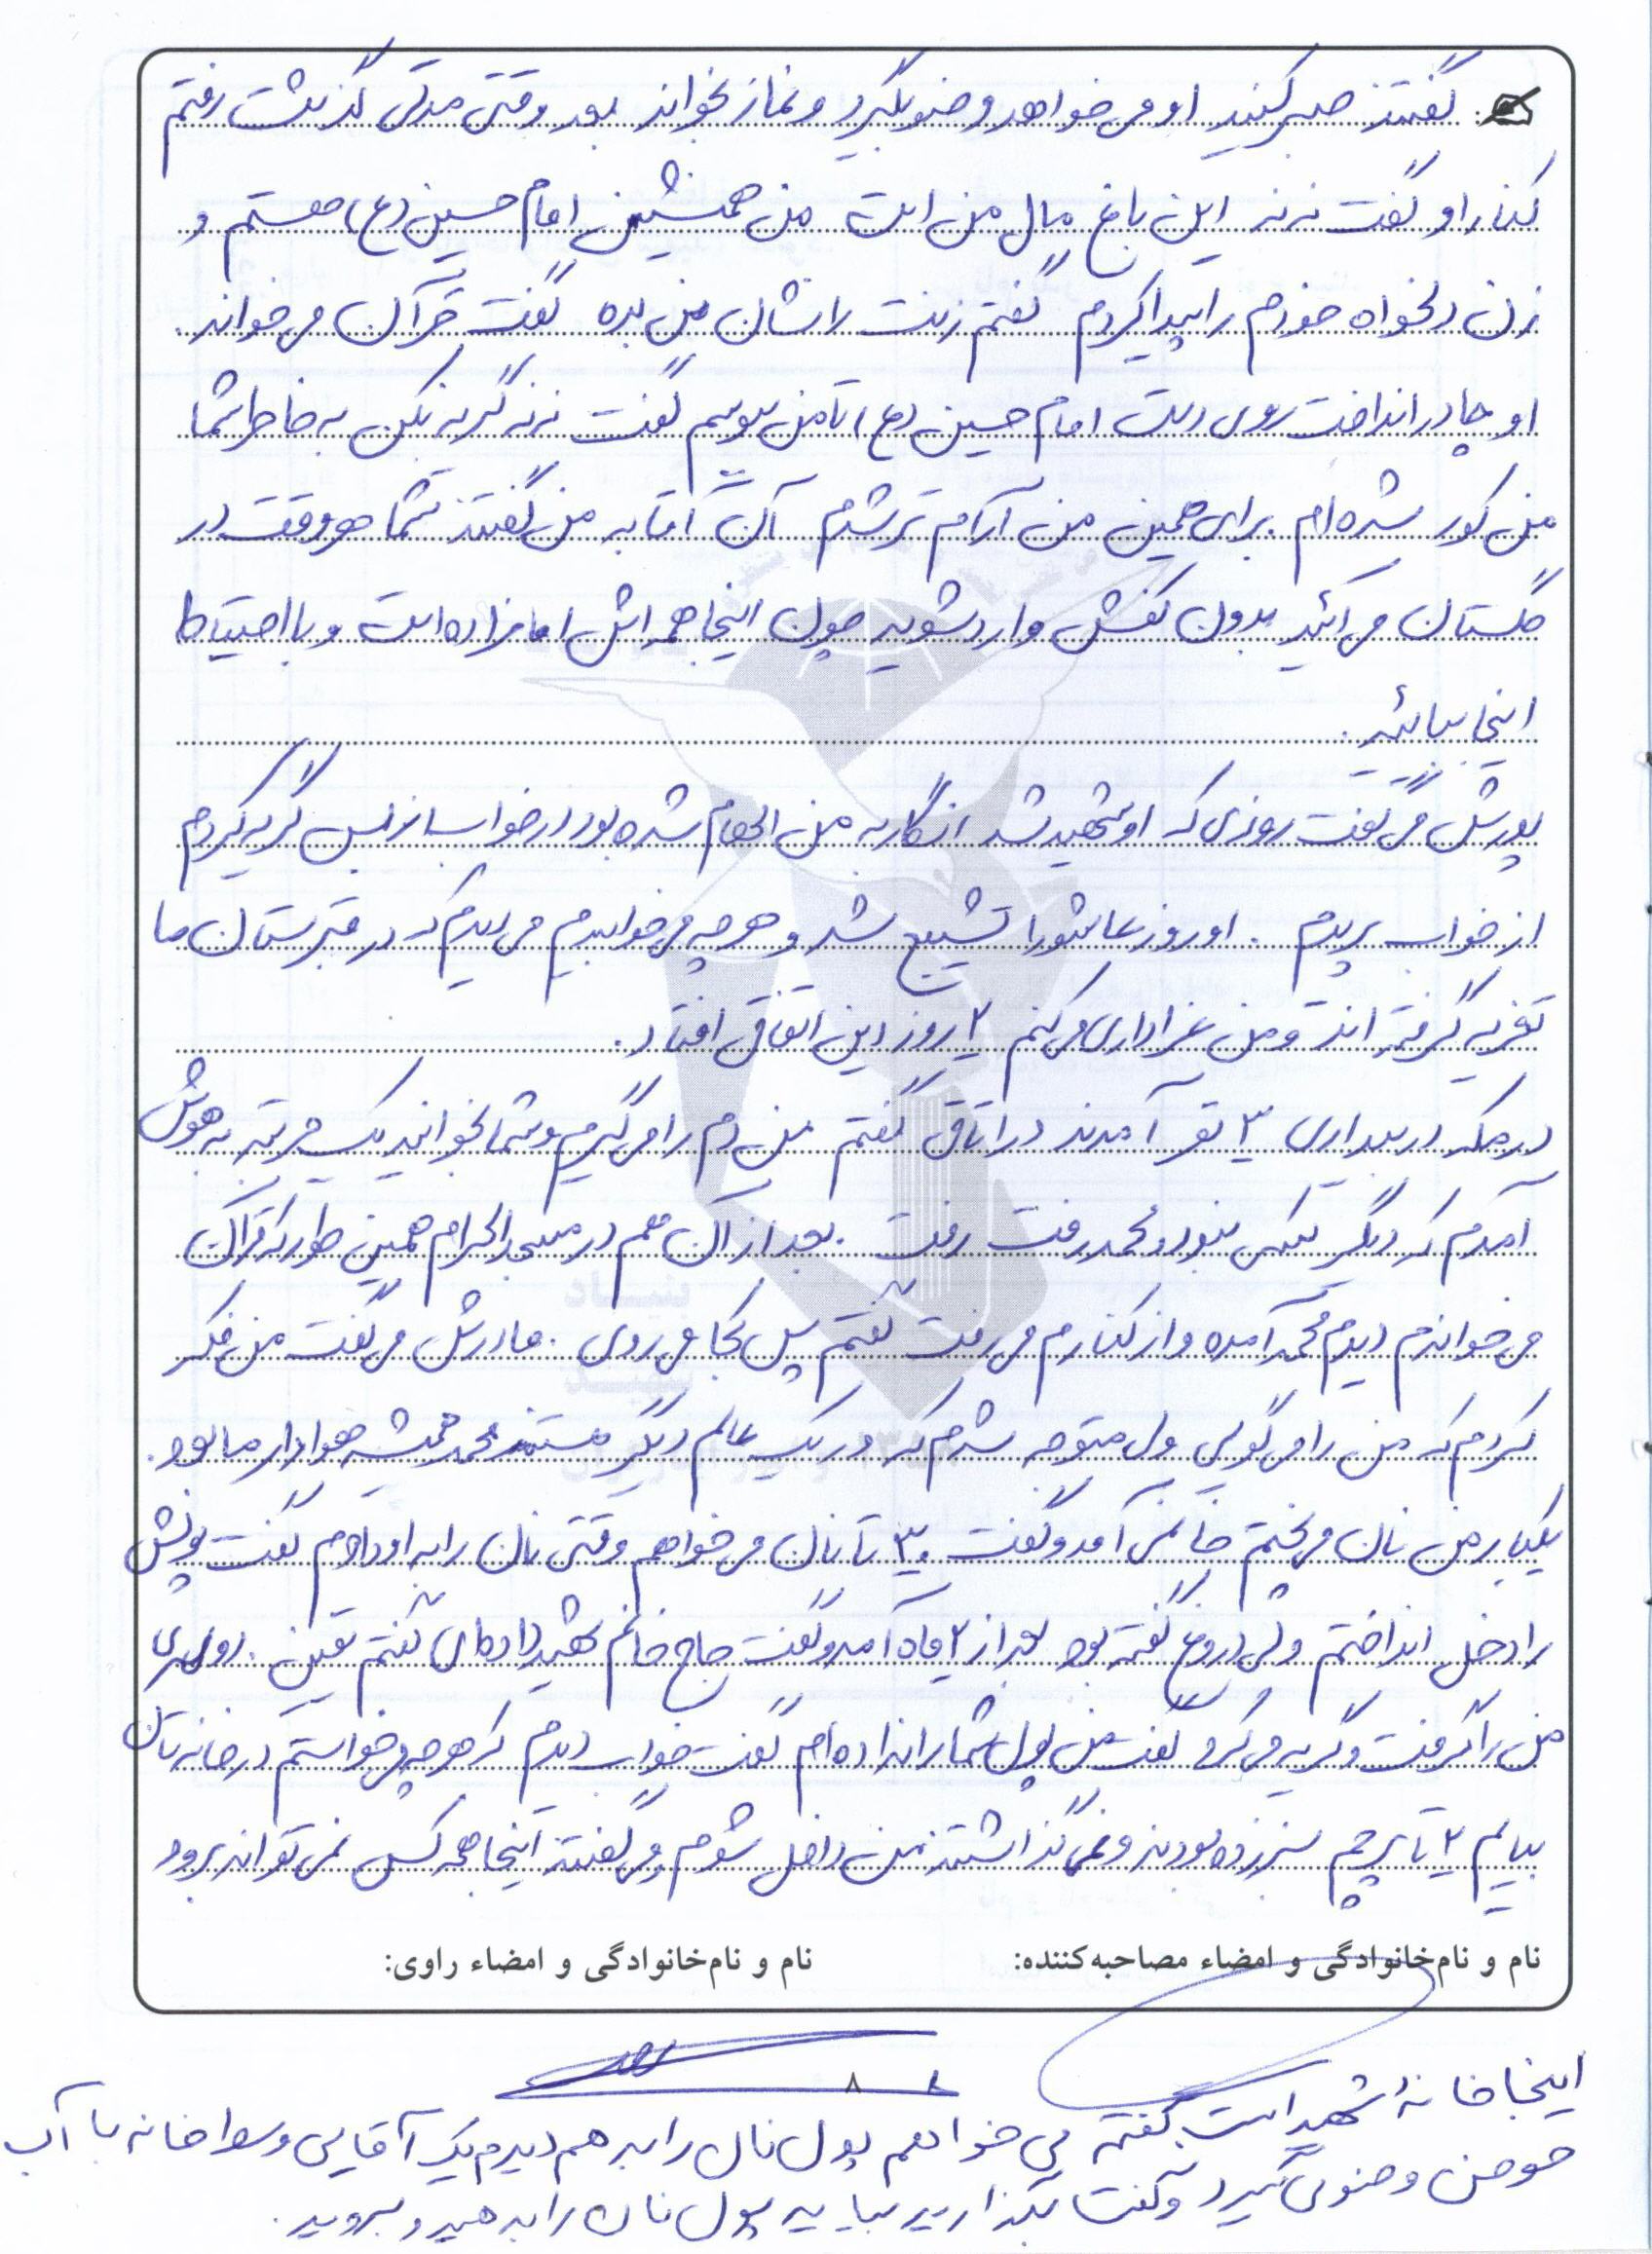 گفتند صبر کنید او می خواهد وضو بگیرد و نماز بخواند بعد وقتی مدتی گذشت رفتم
کنار او گفت ننه این باغ مال من است من همنشین امام حسین (ع) هستم و
زن دلخواه خودم را پیدا کردم گفتم زنت را نشان من بده گفت قرآن می خواند.
او چادر انداخت روی دست امام حسین (ع) تا من ببوسم گفت ننه گریه نکن به خاطر شما
من کور شده ام. برای همین من آرام تر شدم آن آقا به من گفتند شما هر وقت در
گلستان می آئید بدون کفش وارد شوید چون اینجا همه اش امامزاده است و با احتیاط
اینجا بیائید.
پدرش می گفت روزی که او شهید شد انگار به من الهام شده بود در خواب از بس گریه کردم
از خواب پریدم. او روز عاشورا تشییع شد و هر چه می خوابیدم می دیدم که در قبرستان ما
تعزیه گرفته اند و من عزاداری می کنم ۲ روز این اتفاق افتاد.
در مکه در بیداری ۳ نفر آمدند در اتاق گفتم من دم را می گیرم و شما بخوانید یک مرتبه به هوش
آمدم که دیگر کسی نبود و محمد رفت رفت. بعد از آن هم در مسجد الحرام همین طور که قرآن
می خواندم دیدم محمد آمده و از کنارم می رفت گفتم پس کجا می روی. مادرش می گفت من فکر
کردم که من را می گویی ولی متوجه شدم که در یک عالم دیگر هستند محمد همیشه هوادار ما بود.
یکبار من نان می پختم خانمی آمد و گفت ۳۰ تا نان می خواهم وقتی نان را به او دادم گفت پولش
را داخل انداختم ولی دروغ گفته بود بعد از ۲ ماه آمد و گفت حاج خانم شهید داده ای گفتم یقین. روسری
من را گرفت و گریه می کرد گفت من پول شما را نداده ام گفت خواب دیدم که هر چه می خواستم در خانه تان
بیایم ۲ تا پرچم سبز زده بودند و نمی گذاشتند من داخل شوم می گفتند اینجا هر کس نمی تواند برود
نام و نام‌خانوادگی و امضاء مصاحبه‌کننده: نام و نام‌خانوادگی و امضاء راوی:
۸
اینجا خانه شهید است گفتم می خواهم پول نان را بدهم دیدم یک آقایی وسط خانه با آب
حوض وضو می گیرد و گفت بگذارید بیاید پول نان را بدهید و بروید.